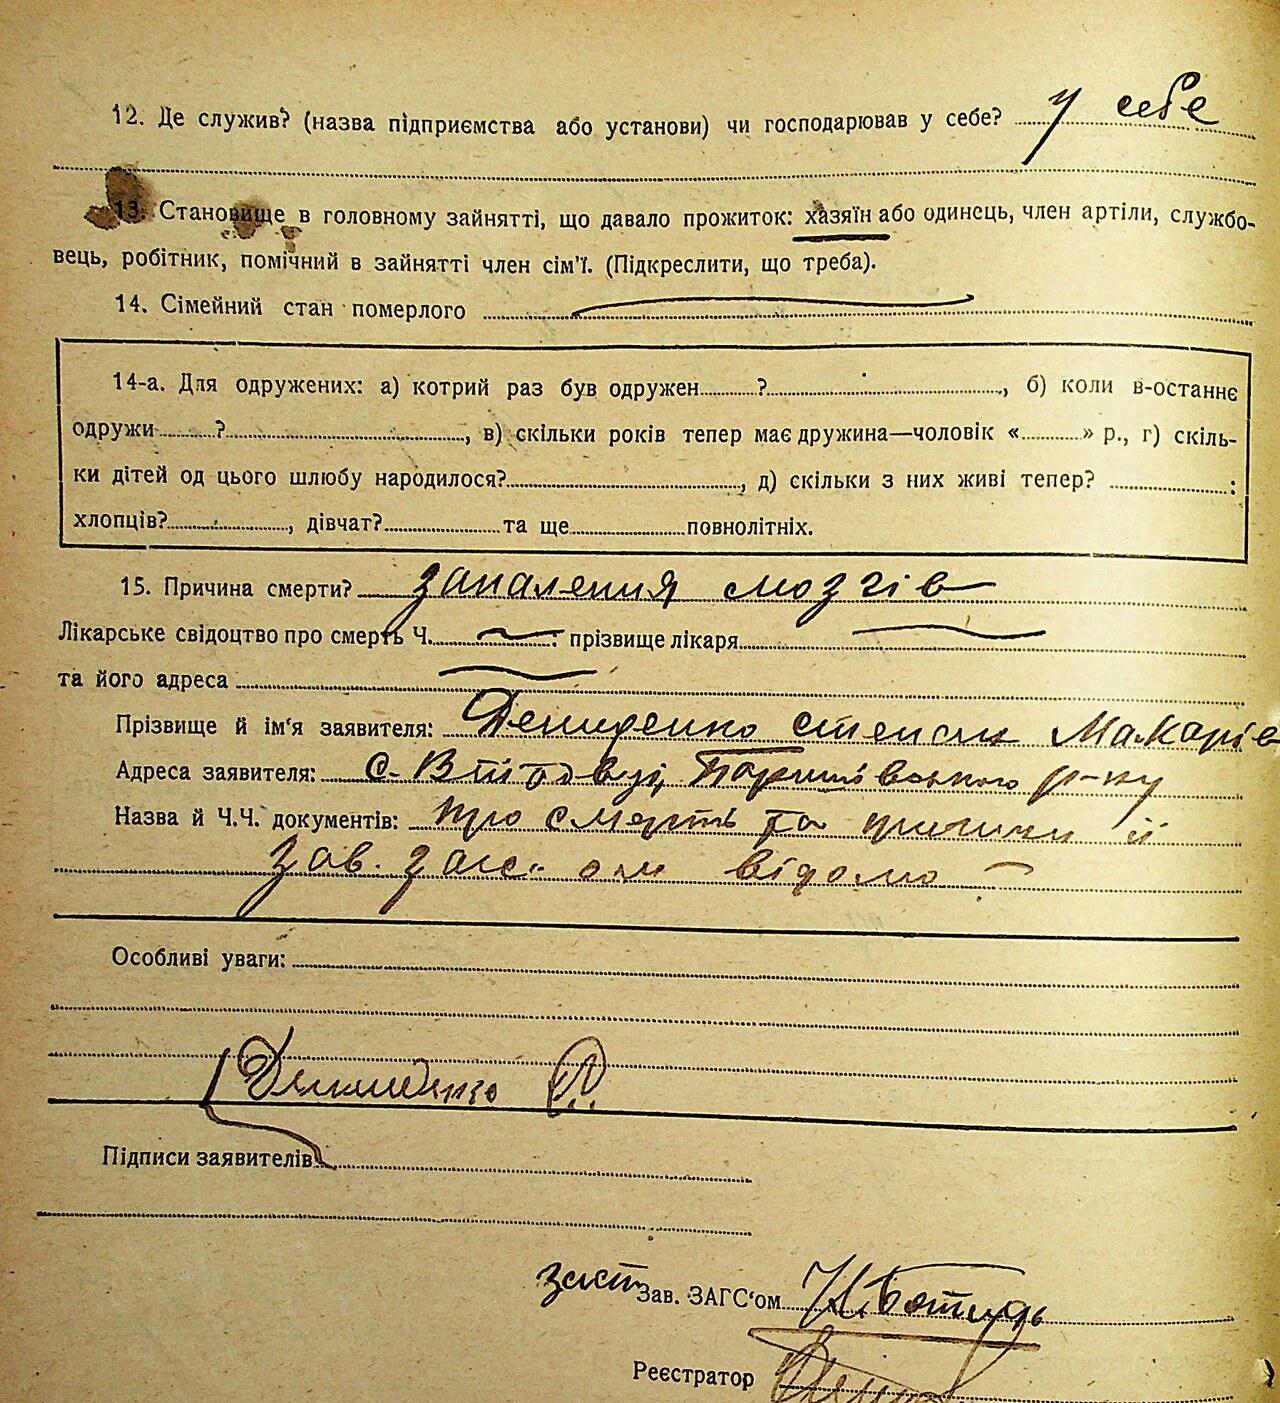 12. Де служив? (назва підприємства або установи) чи господарював у себе? у себе
13. Становище в головному зайнятті, що давало прожиток: хазяїн або одинець, член артіли, службо-
вець, робітник, помічний в зайнятті член сім'ї. (Підкреслити, що треба).
14. Сімейний стан померлого
14-а. Для одружених: а) котрий раз був одружен......?......, б) коли в-останнє
одружи......?......, в) скільки років тепер має дружина—чоловік «......» р., г) скіль-
ки дітей од цього шлюбу народилося?......, д) скільки з них живі тепер? ......:
хлопців?......, дівчат?......та ще......повнолітніх.
15. Причина смерти? запалення мозгів
Лікарське свідоцтво про смерть Ч.......: прізвище лікаря......
та його адреса
Прізвище й ім'я заявителя: Демиденко Степан Макарів
Адреса заявителя: с. р-ну
Назва й Ч.Ч. документів: про смерть та причини її
Зав. загс-ом відомо
Особливі уваги:
Демиденко
Підписи заявителів
заст Зав. ЗАГС'ом
Реєстратор